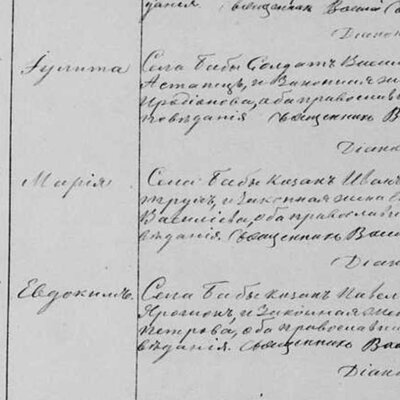 данія Священникъ Васил
Діакон
Іулита
Села Бабы Солдатъ Васил
Астапецъ, и Законная же
Иродіонова, оба православ
повѣданія Священникъ В
Діакон
Марія
Села Бабы Козакъ Иван
и Законная жена
Василіева, оба православн
вѣданія Священникъ Васи
Діак
Евдокимъ
Села Бабы Козакъ Павел
и Законная же
Петрова, оба православн
вѣданія. Священникъ Ва
Діако